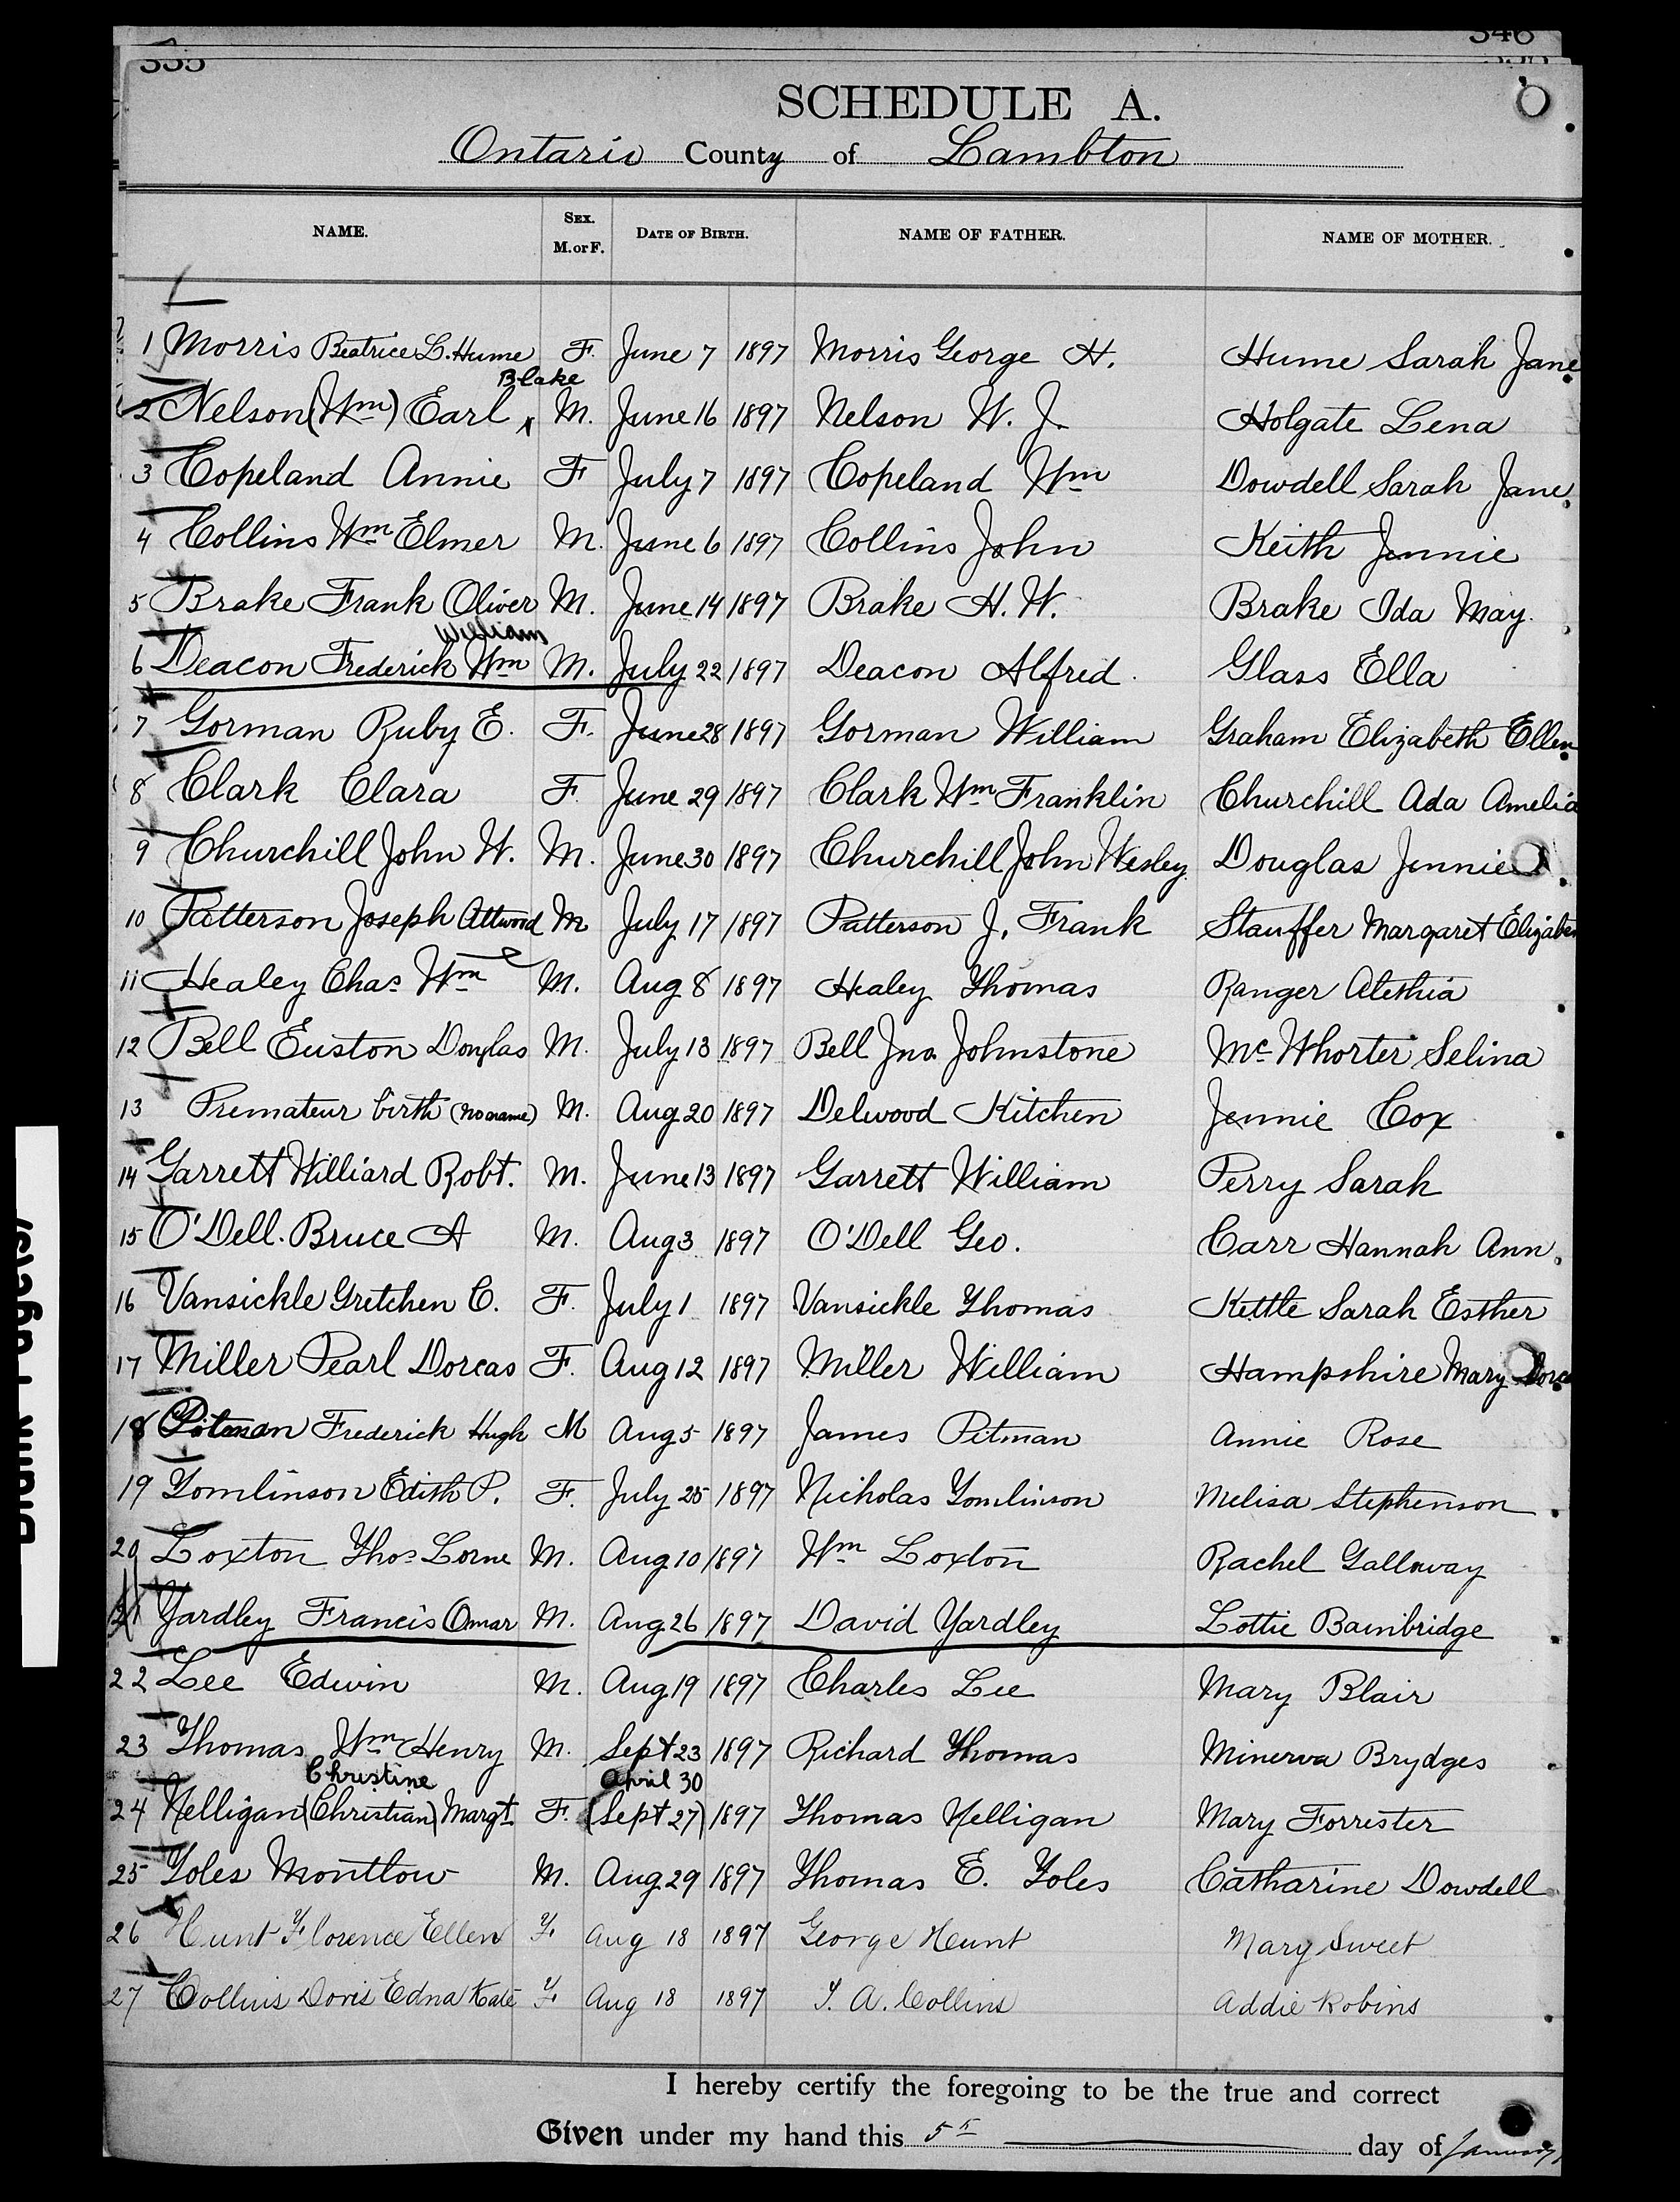 346
335
SCHEDULE A.
Ontario County of Lambton
NAME. SEX. M. or F. DATE OF BIRTH. NAME OF FATHER. NAME OF MOTHER.
1 Morris Beatrice L. Hume F. June 7 1897 Morris George H. Hume Sarah Jane
Blake
2 Nelson (Wm) Earl ^ M. June 16 1897 Nelson W. J. Holgate Lena
3 Copeland Annie F July 7 1897 Copeland Wm Dowdell Sarah Jane
4 Collins Wm Elmer M. June 6 1897 Collins John Keith Jennie
5 Brake Frank Oliver M. June 14 1897 Brake H. W. Brake Ida May.
William
6 Deacon Frederick Wm M. July 22 1897 Deacon Alfred. Glass Ella
7 Gorman Ruby E. F. June 28 1897 Gorman William Graham Elizabeth Ellen
8 Clark Clara F. June 29 1897 Clark Wm Franklin Churchill Ada Amelia
9 Churchill John W. M. June 30 1897 Churchill John Wesley Douglas Jennie
10 Patterson Joseph Attwood M July 17 1897 Patterson J. Frank Stauffer Margaret Elizabe
11 Healey Chas Wm M. Aug 8 1897 Healey Thomas Ranger Alethia
12 Bell Euston Douglas M. July 13 1897 Bell Jno. Johnstone Mc Whorter Selina
13 Premateur birth (no name) M. Aug 20 1897 Delwood Kitchen Jennie Cox
14 Garrett Williard Robt. M. June 13 1897 Garrett William Perry Sarah
15 O'Dell. Bruce A M. Aug 3 1897 O'Dell Geo. Carr Hannah Ann
16 Vansickle Gretchen C. F. July 1 1897 Vansickle Thomas Kettle Sarah Esther
17 Miller Pearl Dorcas F. Aug 12 1897 Miller William Hampshire Mary Dorc
18 Pitman Frederick Hugh M Aug 5 1897 James Pitman Annie Rose
19 Tomlinson Edith P. F. July 25 1897 Nicholas Tomlinson Melisa Stephenson
20 Loxton Thos Lorne M. Aug 10 1897 Wm Loxton Rachel Galloway
21 Yardley Francis Omar M. Aug 26 1897 David Yardley Lottie Bainbridge
22 Lee Edwin M. Aug 19 1897 Charles Lee Mary Blair
23 Thomas Wm Henry M. Sept 23 1897 Richard Thomas Minerva Brydges
Christine April 30
24 Nelligan (Christian) Margt F. (Sept 27) 1897 Thomas Nelligan Mary Forrester
25 Toles Montlow M. Aug 29 1897 Thomas E. Toles Catharine Dowdell
26 Hunt Florence Ellen F. Aug 18 1897 George Hunt Mary Sweet
27 Collins Doris Edna Kate F Aug 18 1897 T. A. Collins Addie Robins
I hereby certify the foregoing to be the true and correct
Given under my hand this 5th day of January